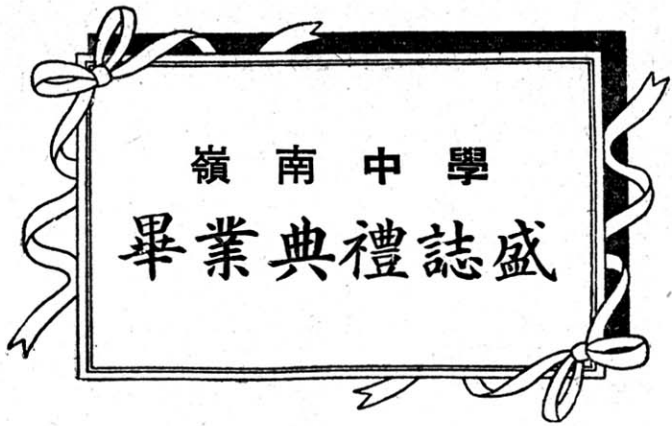 嶺南中學
畢業典禮誌盛